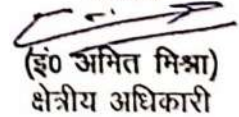 (इं0 अमित मिश्रा)
क्षेत्रीय अधिकारी